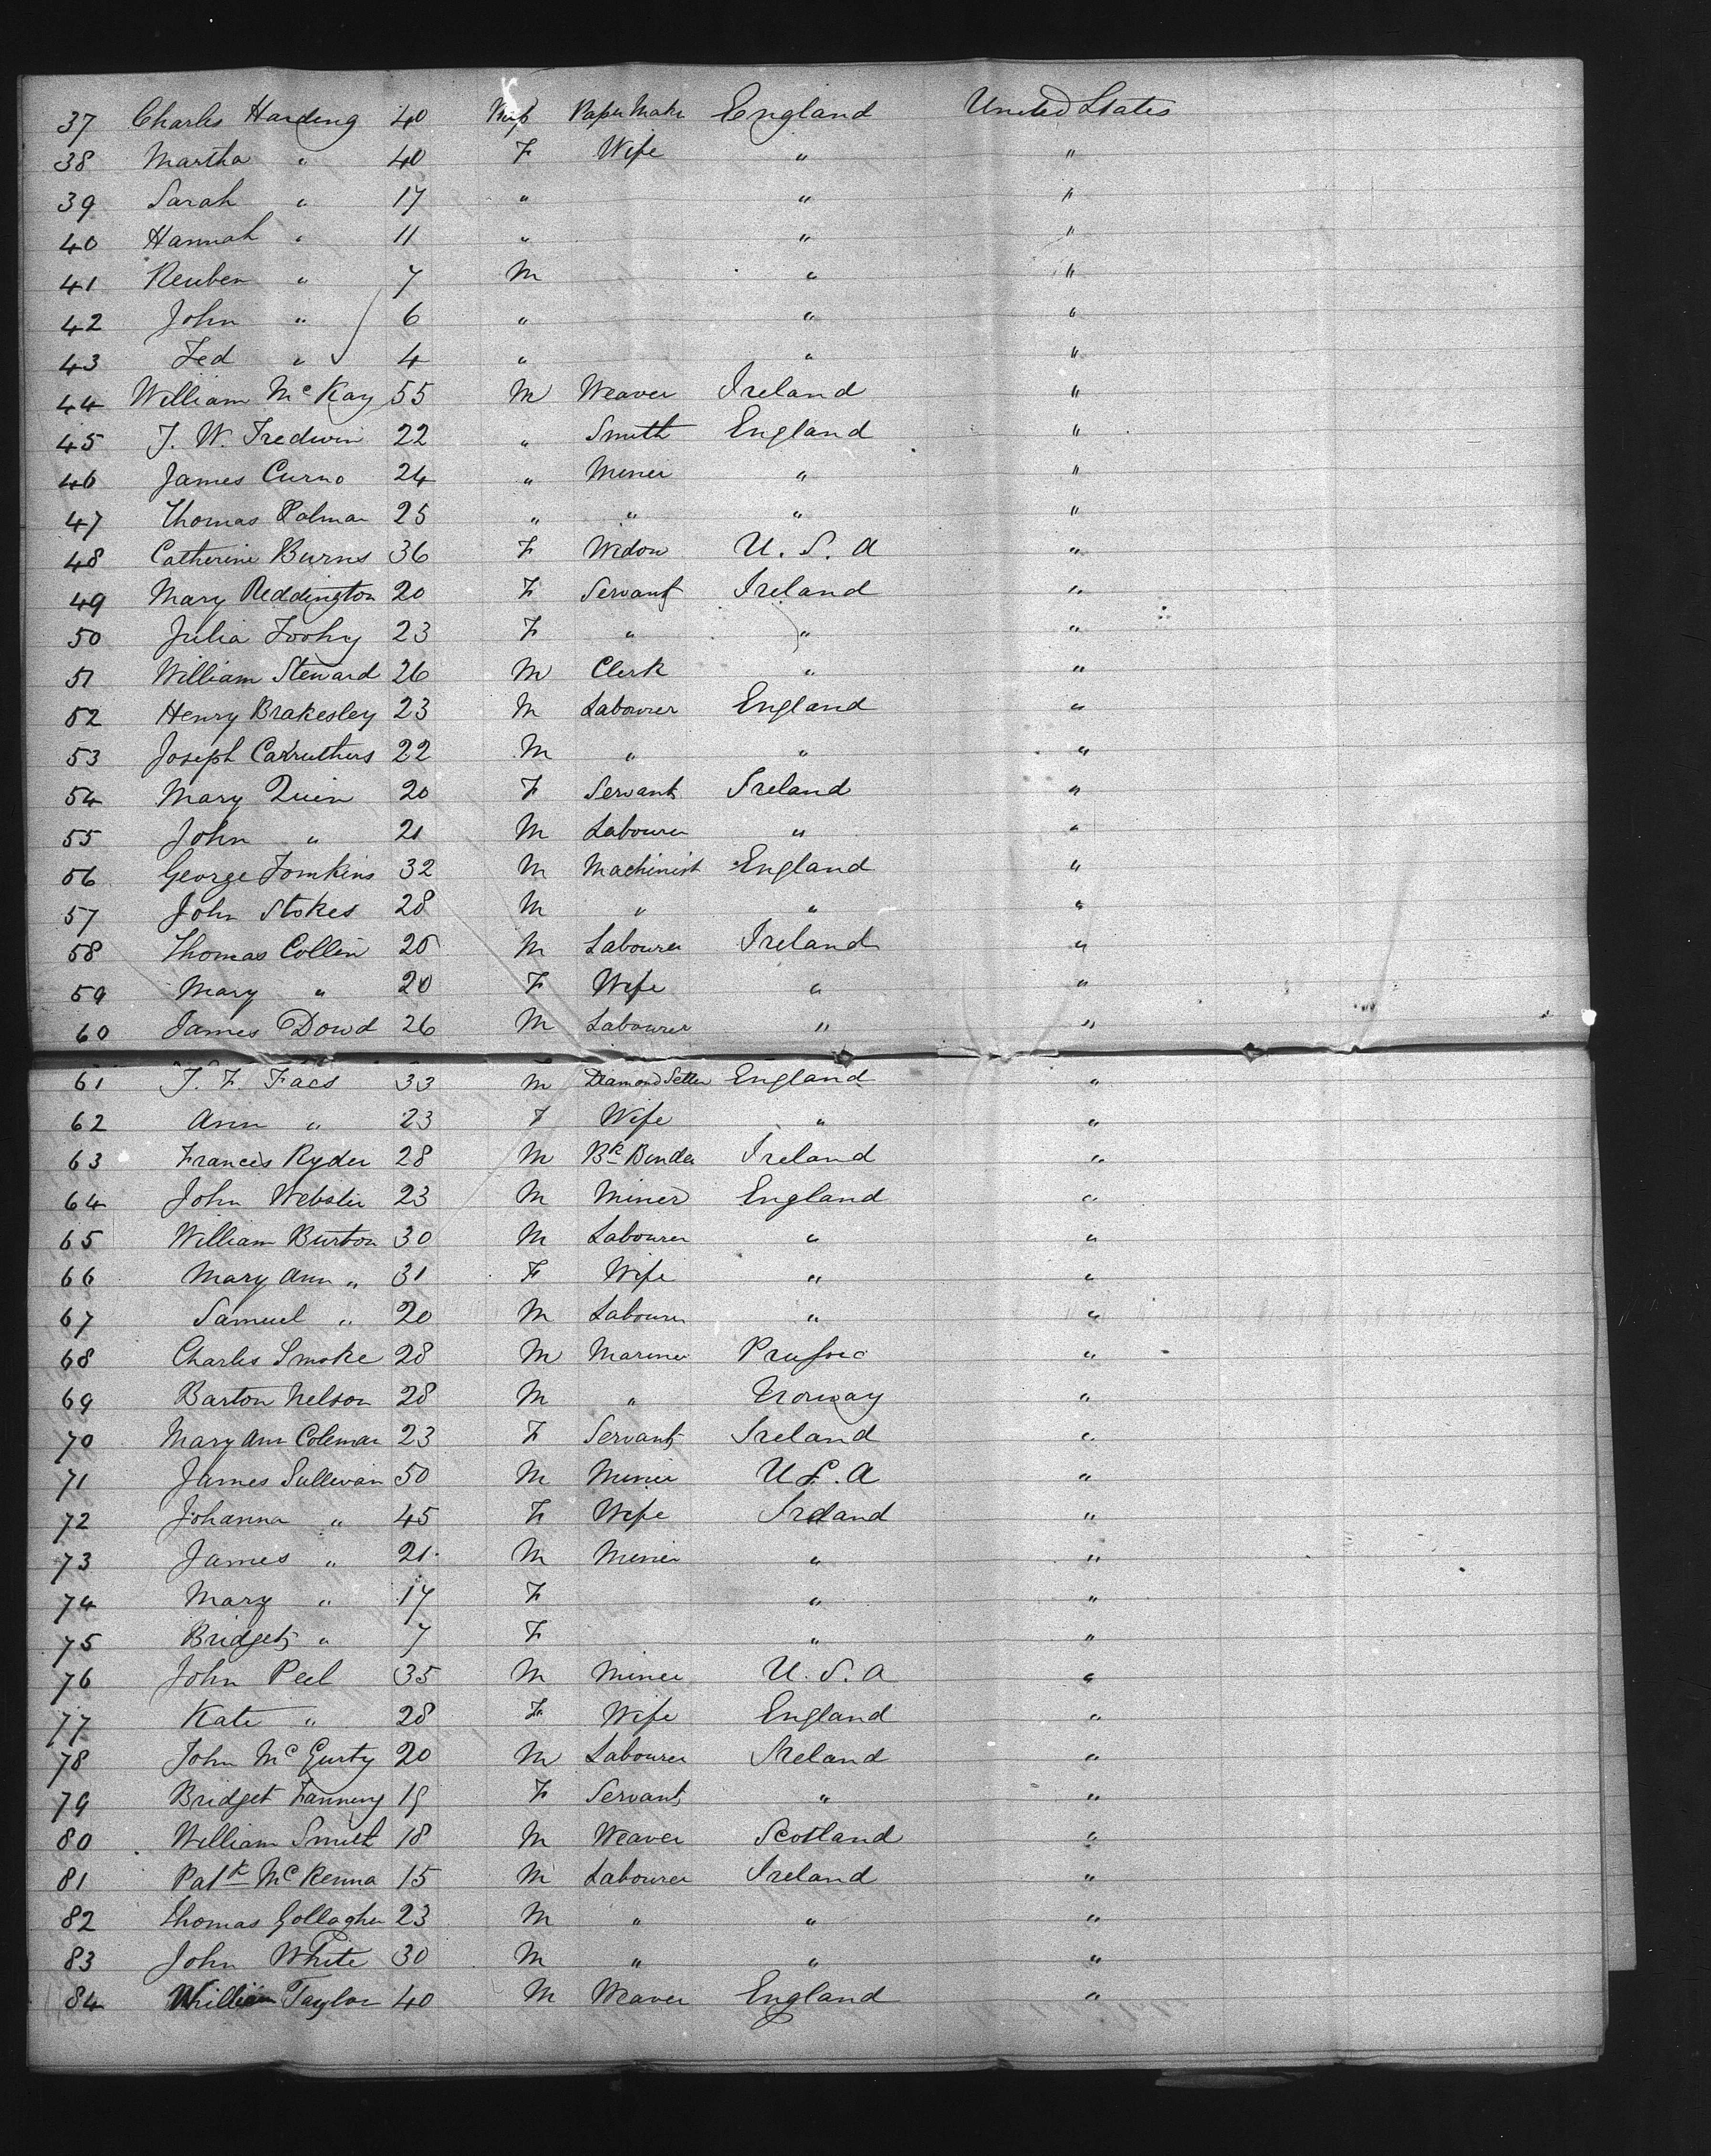 37 Charles Harding 40 Paper Make England United States
38 Martha " 40 F Wife " "
39 Sarah " 17 " " "
40 Hannah " 11 " " "
41 Reuben " 7 M " "
42 John " 6 " " "
43 Fed " 4 " " "
44 William McKay 55 M Weaver Ireland "
45 J. W. Tredwin 22 " Smith England "
46 James Curno 24 " Miner " "
47 Thomas Palmar 25 " " " "
48 Catherine Burns 36 F Widow U. S. A "
49 Mary Reddington 20 F Servant Ireland "
50 Julia Toohy 23 F " " "
51 William Steward 26 M Clerk " "
52 Henry Brakesley 23 M Labourer England "
53 Joseph Carruthers 22 M " " "
54 Mary Quin 20 F Servant Ireland "
55 John " 21 M Labourer " "
56 George Tomkins 32 M Machinist England "
57 John Stokes 28 M " " "
58 Thomas Collin 25 M Labourer Ireland "
59 Mary " 20 F Wife " "
60 James Dowd 26 M Labourer " "
61 J. F. Facs 33 M Diamond Setter England "
62 Ann " 23 F Wife " "
63 Francis Ryder 28 M Bk Binder Ireland "
64 John Webster 23 M Miner England "
65 William Burton 30 M Labourer " "
66 Mary Ann " 31 F Wife " "
67 Samuel " 20 M Labourer " "
68 Charles Smoke 28 M Mariner Prussia "
69 Barton Nelson 28 M " Norway "
70 Mary Ann Coleman 23 F Servant Ireland "
71 James Sullivan 50 M Miner U S. A "
72 Johanna " 45 F Wife Ireland "
73 James " 21 M Miner " "
74 Mary " 17 F " "
75 Bridget " 7 F " "
76 John Peel 35 M Miner U. S. A "
77 Kate " 28 F Wife England "
78 John McGurty 20 M Labourer Ireland "
79 Bridget Fanning 19 F Servant " "
80 William Smith 18 M Weaver Scotland "
81 Patk McKenna 15 M Labourer Ireland "
82 Thomas Gollagher 23 M " " "
83 John White 30 M " " "
84 William Taylor 40 M Weaver England "